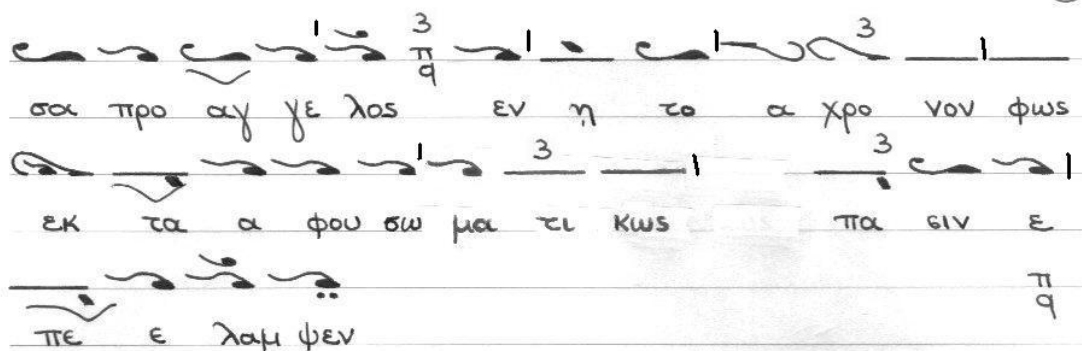 3 π
σαι προ αγ γε λος q εν η το α χρο νον φως
3
εκ τα α φου σω μα τι κως πα σιν ε
3 3
πε ε λαμ ψεν π q